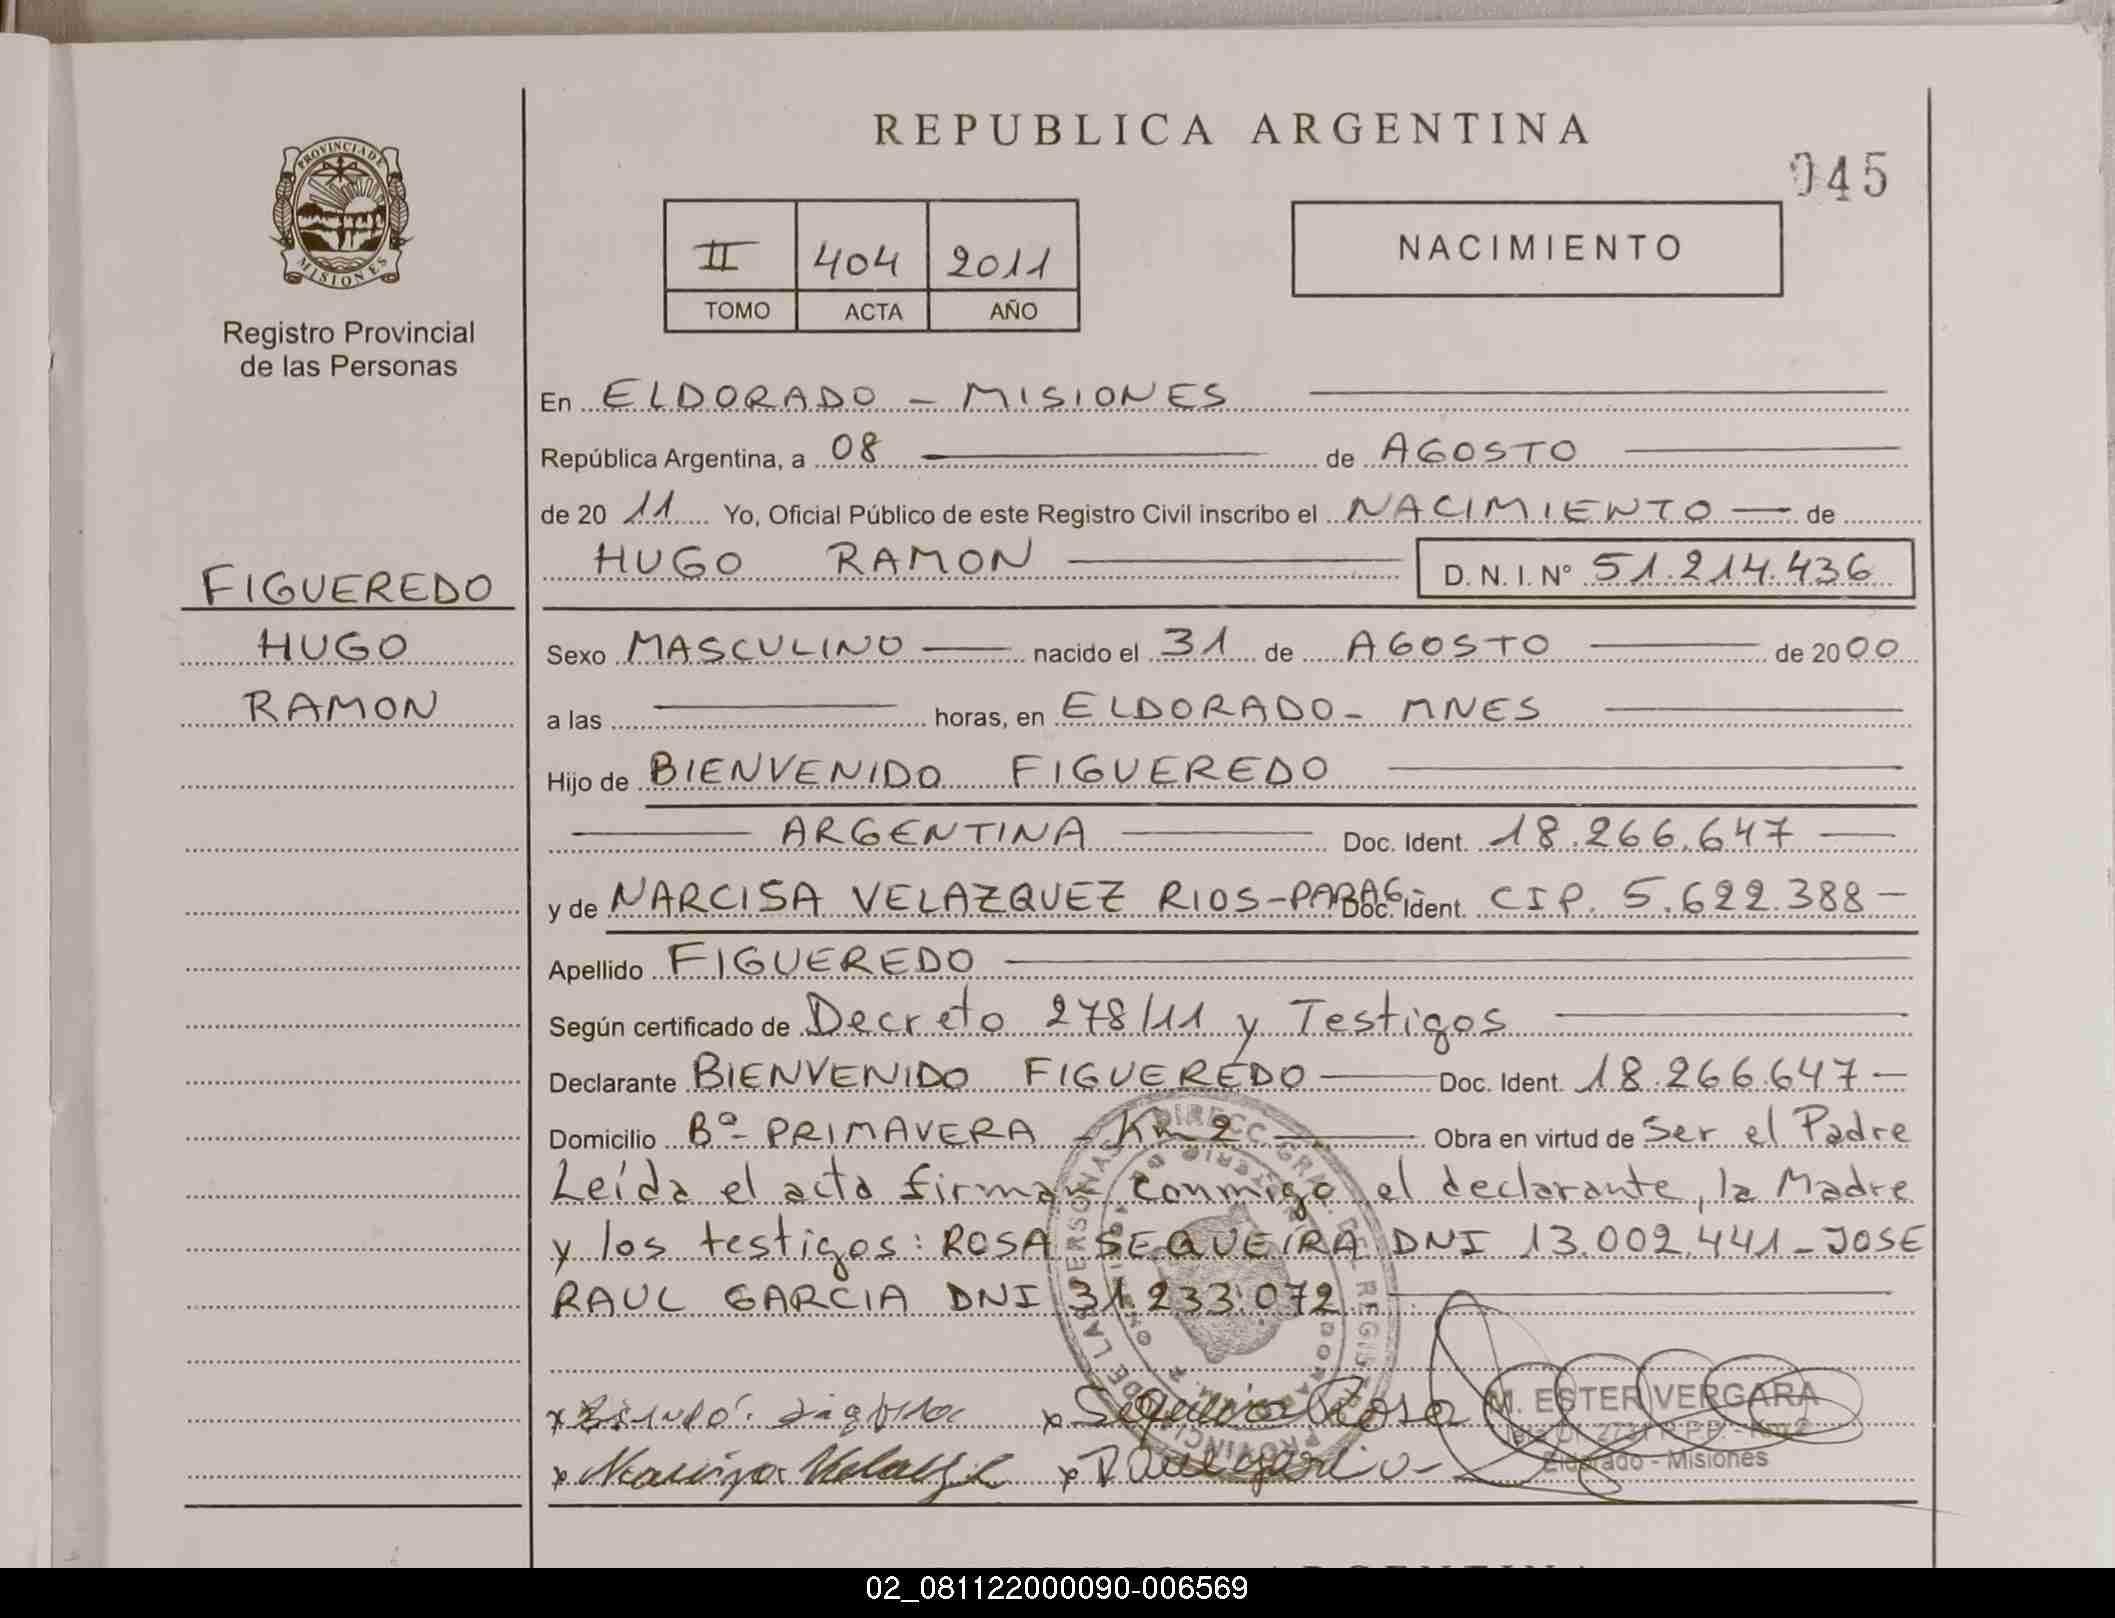 REPUBLICA ARGENTINA
045
PROVINCIA DE
MISIONES
Registro Provincial
de las Personas
II 404 2011
TOMO ACTA AÑO
NACIMIENTO
En ELDORADO - MISIONES
República Argentina, a 08 de AGOSTO
de 20 11 Yo, Oficial Público de este Registro Civil inscribo el NACIMIENTO de
HUGO RAMON D. N. I. N° 51.214.436
FIGUEREDO
HUGO
RAMON
Sexo MASCULINO nacido el 31 de AGOSTO de 2000
a las horas, en ELDORADO - MNES
Hijo de BIENVENIDO FIGUEREDO
ARGENTINA Doc. Ident. 18.266.647
y de NARCISA VELAZQUEZ RIOS - PARAG. Doc. Ident. CIP. 5.622.388
Apellido FIGUEREDO
Según certificado de Decreto 278/11 y Testigos
Declarante BIENVENIDO FIGUEREDO Doc. Ident. 18.266.647
Domicilio Bº- PRIMAVERA - Km 2 Obra en virtud de Ser el Padre
Leída el acta firman conmigo el declarante, la Madre
y los testigos: ROSA SEQUEIRA DNI 13.002.441 - JOSE
RAUL GARCIA DNI 31.233.072
Rosa
M. ESTER VERGARA
Eldorado - Misiones
02_081122000090-006569